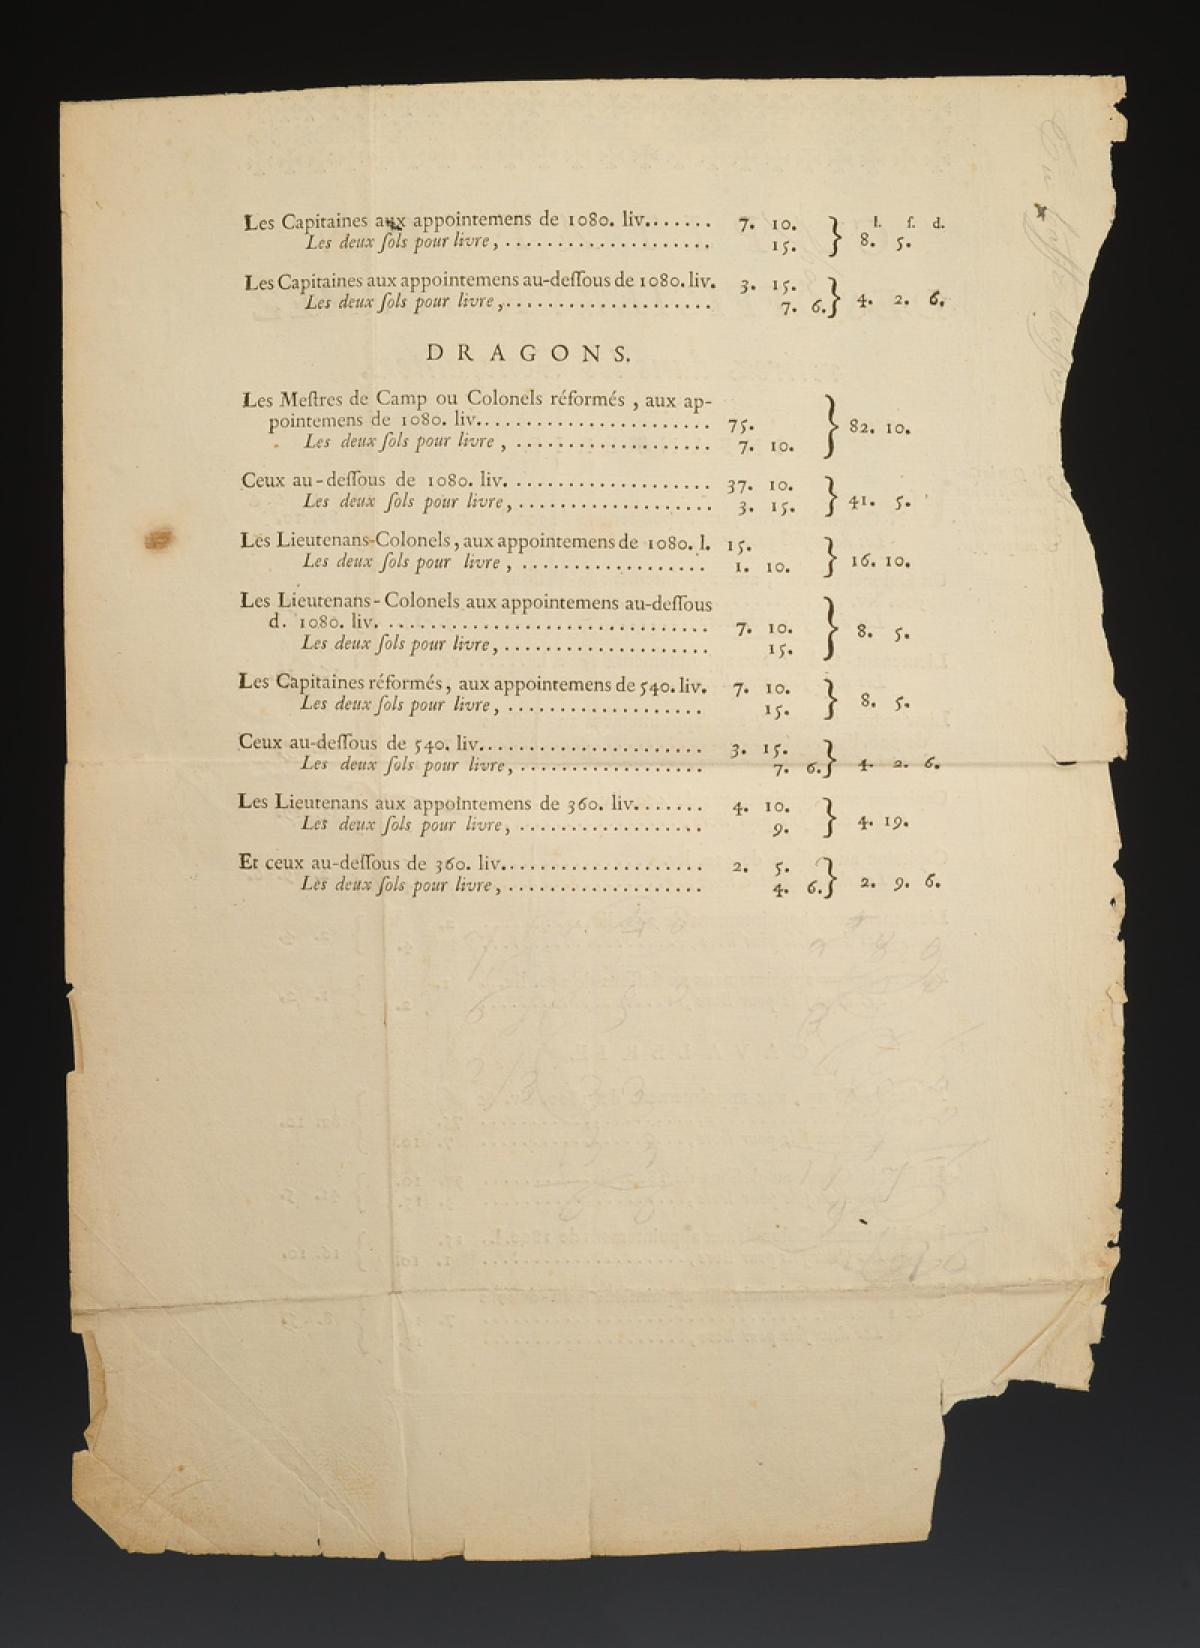 Les Capitaines aux appointemens de 1080. liv....... 7. 10. } l. ſ. d.
Les deux ſols pour livre, .................... 15. } 8. 5.
Les Capitaines aux appointemens au-deſſous de 1080. liv. 3. 15. }
Les deux ſols pour livre, .................... 7. 6. } 4. 2. 6.
DRAGONS.
Les Meſtres de Camp ou Colonels réformés, aux ap-
pointemens de 1080. liv........................ 75. } 82. 10.
Les deux ſols pour livre, .................... 7. 10.
Ceux au-deſſous de 1080. liv. .................... 37. 10. }
Les deux ſols pour livre, .................... 3. 15. } 41. 5.
Les Lieutenans-Colonels, aux appointemens de 1080. l. 15. }
Les deux ſols pour livre, .................... 1. 10. } 16. 10.
Les Lieutenans-Colonels aux appointemens au-deſſous
d. 1080. liv. ................................ 7. 10. } 8. 5.
Les deux ſols pour livre, .................... 15.
Les Capitaines réformés, aux appointemens de 540. liv. 7. 10. }
Les deux ſols pour livre, .................... 15. } 8. 5.
Ceux au-deſſous de 540. liv....................... 3. 15. }
Les deux ſols pour livre, .................... 7. 6. } 4. 2. 6.
Les Lieutenans aux appointemens de 360. liv....... 4. 10. }
Les deux ſols pour livre, .................... 9. } 4. 19.
Et ceux au-deſſous de 360. liv.................... 2. 5. }
Les deux ſols pour livre, .................... 4. 6. } 2. 9. 6.